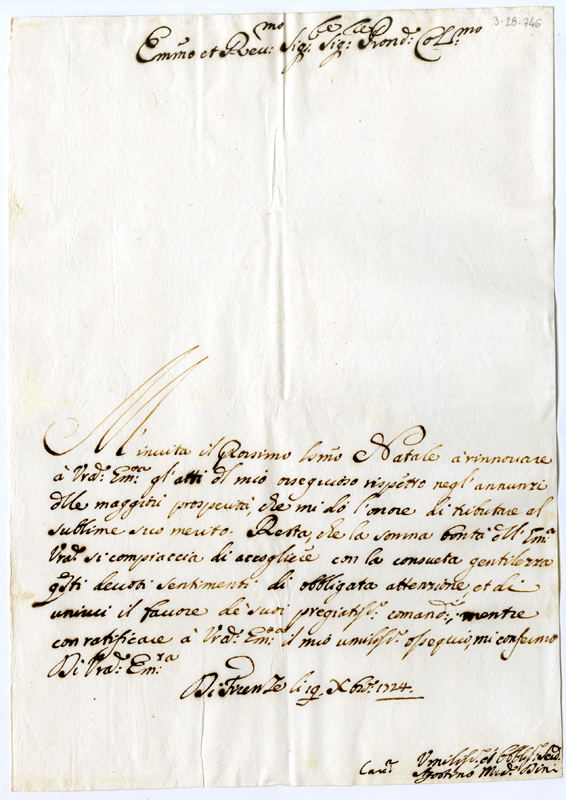 3-28-746
Em̃o et Reu:mo Sig:re Sig:re Prond: Col:mo
M'inuita il prossimo Ssm̃o Natale à rinnouare
à Vrã: Em:za gl'atti del mio ossequioso rispetto negl'annunzi
delle maggiori prosperità, che mi dò l'onore di tributare al
sublime suo merito. Resta, che la somma bontà dell'Em:a
Vrã: si compiaccia di accogliere con la consueta gentilezza
qsti deuoti sentimenti di obbligata attenzione, et di
unirui il fauore de suoi pregiatis:i comand:i, mentre
con ratificare à Vrã: Em:za il mio umilis:o ossequio, mi confermo
Di Vrã: Em:za
Di Firenze li 19. Xbre: 1724.
Umilis:o et Obblig: Seru:
Agostino Bini